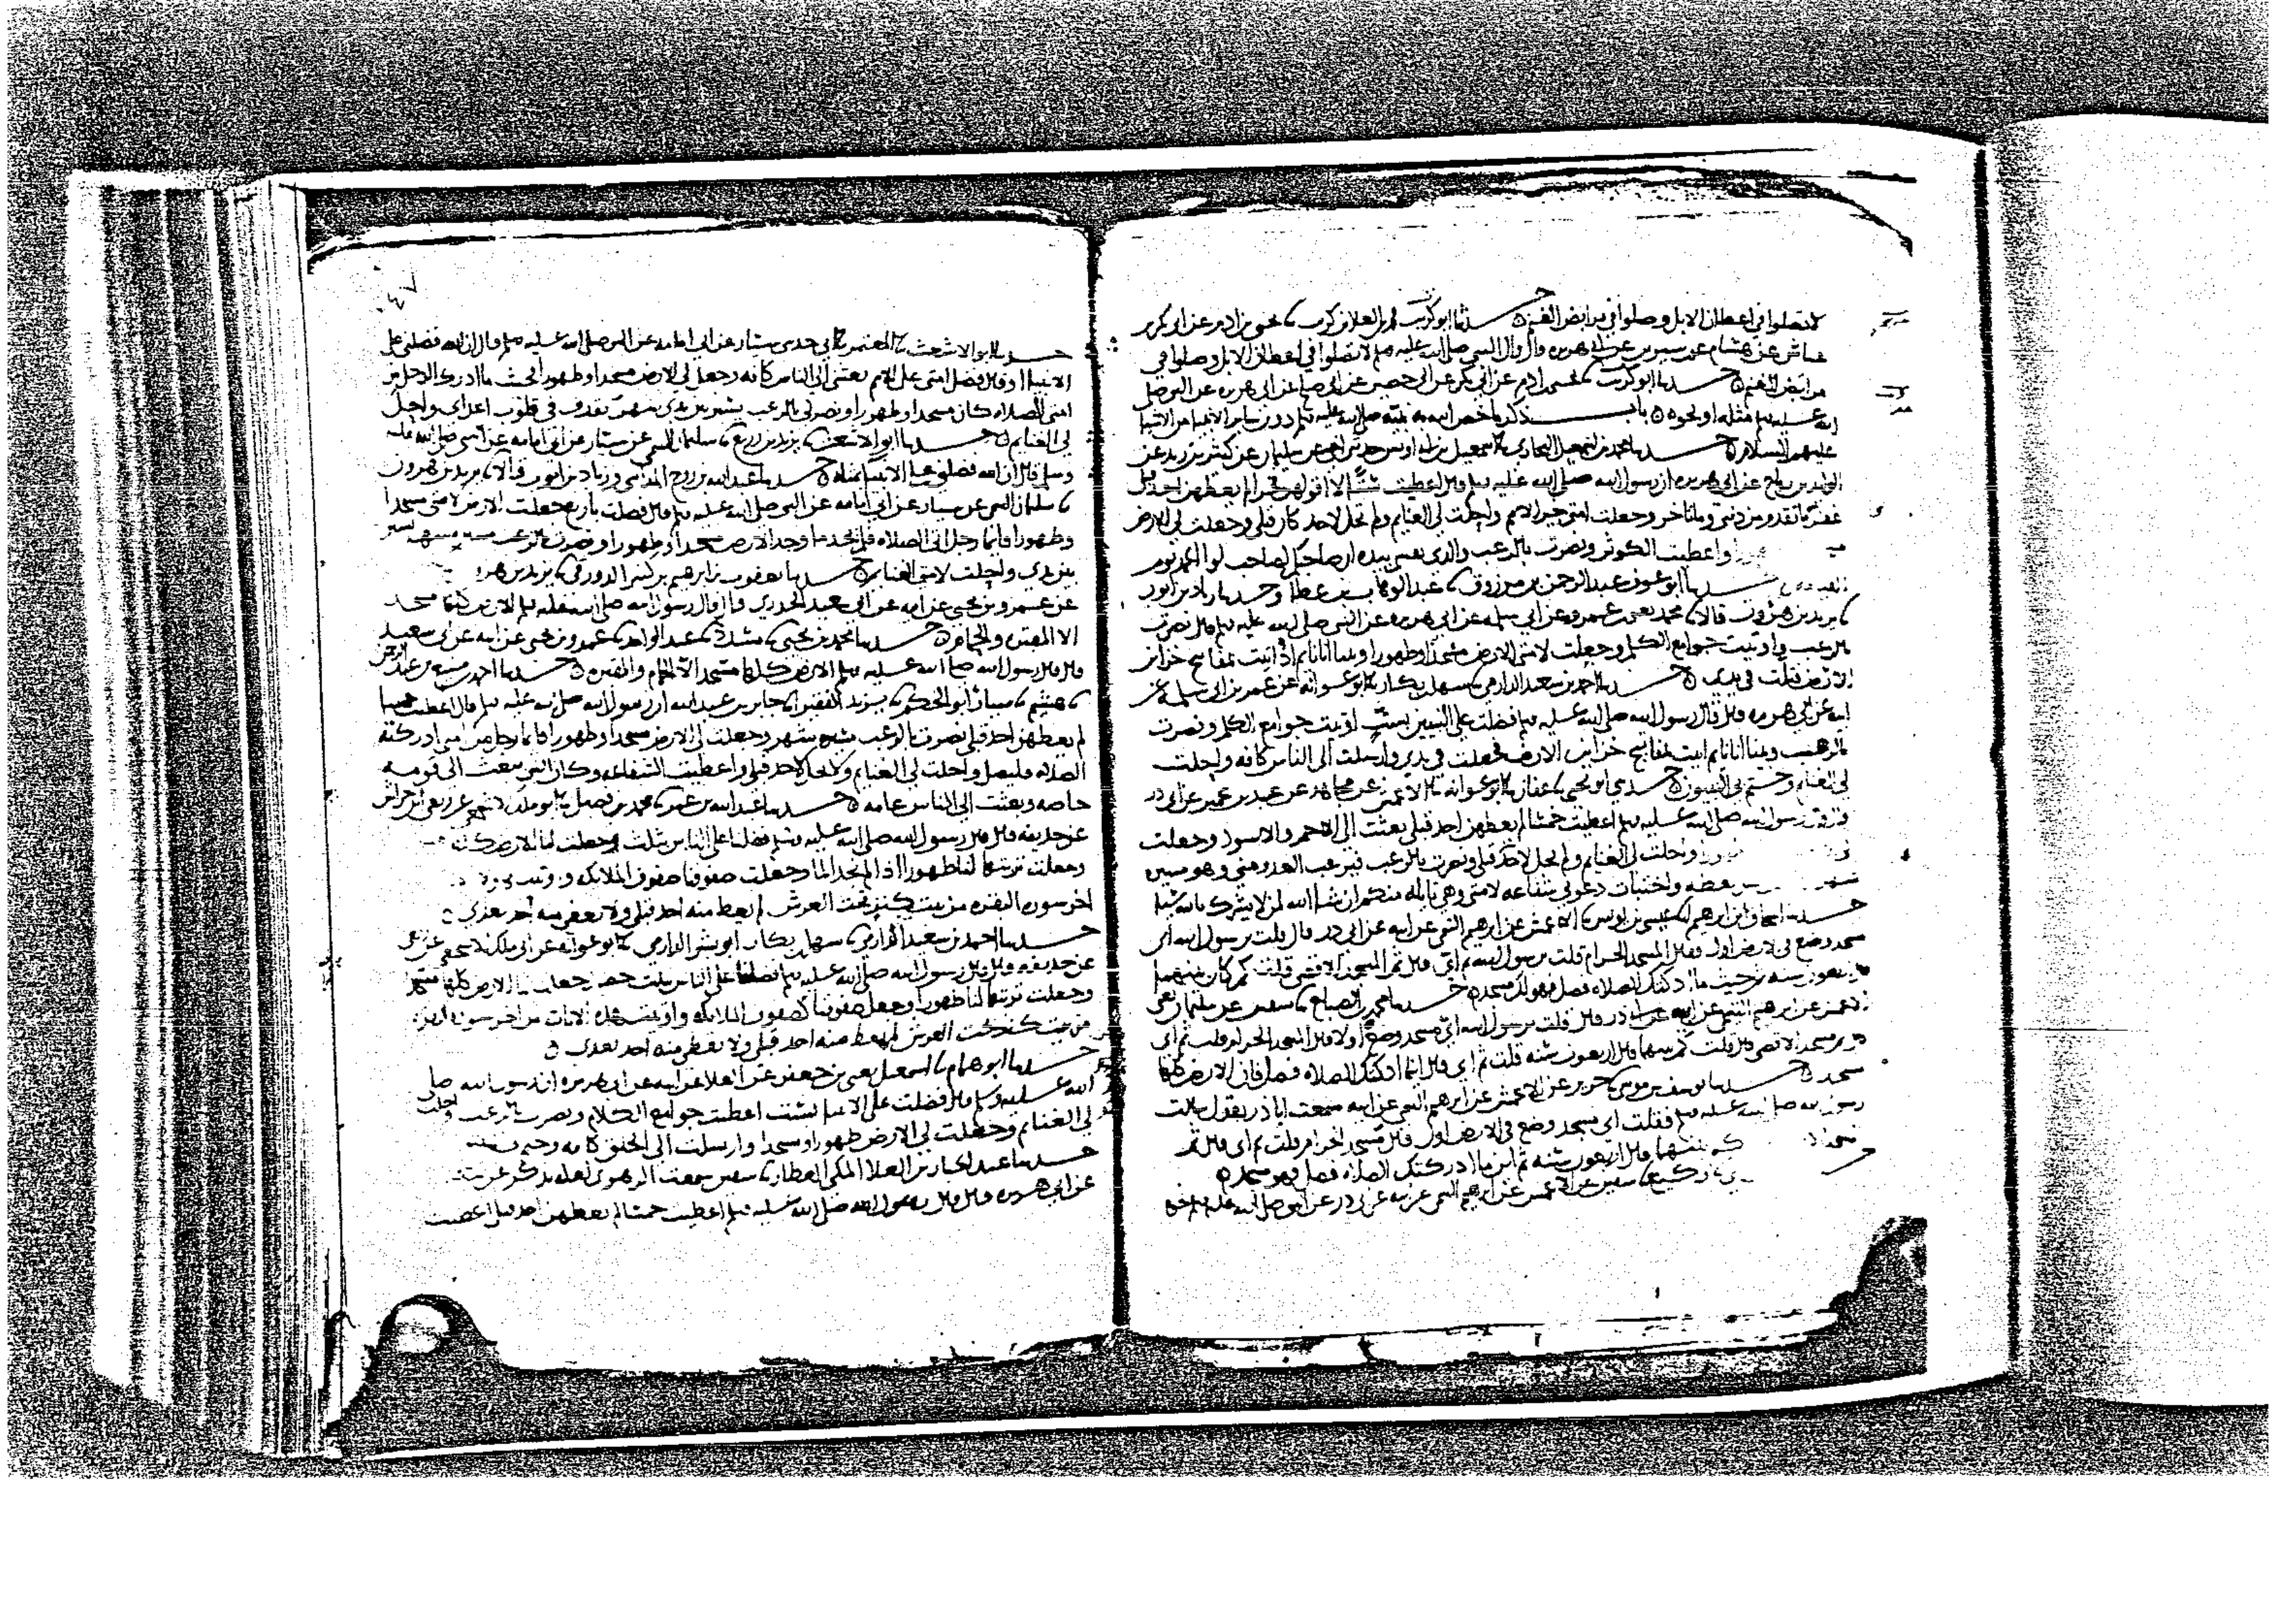 لا تصلوا في اعطان الابل وصلوا في مرابض الغنم حدثنا ابو كريب محمد بن العلا بن كريب نا يحيى بن ادم عن ابي بكر بن
عياش عن هشام عن ابن سيرين عن ابي هريره قال قال النبي صلى الله عليه وسلم لا تصلوا في اعطان الابل وصلوا في
مرابض الغنم حدثنا ابو كريب نا يحيى بن ادم عن ابي بكر عن ابي حصين عن ابي صالح عن ابي هريره عن النبي صلى
الله عليه وسلم مثله او نحوه باب ذكر ما خص الله به نبيه صلى الله عليه وسلم دون سائر الانبيا
عليهم السلام حدثنا محمد بن اسمعيل البخاري نا اسمعيل بن ابي اويس حدثني اخي عن سليمان عن كثير بن زيد عن
الوليد بن رباح عن ابي هريره ان رسول الله صلى الله عليه وسلم قال اعطيت ستا لا اقولهن فخرا لم يعطهن احد قبلي
غفر لي ما تقدم من ذنبي وما تاخر وجعلت امتي خير الامم واحلت لي الغنايم ولم تحل لاحد كان قبلي وجعلت لي الارض
واعطيت الكوثر ونصرت بالرعب والذي نفسي بيده ان صاحبكم لصاحب لوا الحمد يوم
حدثنا ابو عوف عبد الرحمن بن مرزوق نا عبد الوهاب بن عطا وحدثنا زياد بن ايوب
نا يزيد بن هرون قالا نا محمد يعني بن عمرو عن ابي سلمه عن ابي هريره عن النبي صلى الله عليه وسلم قال نصرت
بالرعب واوتيت جوامع الكلم وجعلت لامتي الارض مسجدا وطهورا وبينا انا نايم اذ اتيت بمفاتيح خزاين
الارض فتلت في يدي حدثنا احمد بن سعيد الدارمي نا سهل بن بكار نا ابو عوانه عن عمر بن ابي سلمه عن
ابيه عن ابي هريره قال قال رسول الله صلى الله عليه وسلم فضلت على النبيين بست اوتيت جوامع الكلم ونصرت
بالرعب وبينا انا نايم اتيت بمفاتيح خزاين الارض فجعلت في يدي وارسلت الى الناس كافه واحلت
لي الغنايم وختم بي النبيون حدثني ابو يحيى نا عفان نا ابو عوانه نا الاعمش عن مجاهد عن عبيد بن عمير عن ابي ذر
قال قال رسول الله صلى الله عليه وسلم اعطيت خمسا لم يعطهن احد قبلي بعثت الى الاحمر والاسود وجعلت
واحلت لي الغنايم ولم تحل لاحد قبلي ونصرت بالرعب فيرعب العدو مني وهو مسيره
شهر تعطه واختبات دعوتي شفاعه لامتي وهي نايله منكم ان شا الله لمن لا يشرك بالله شيا
حدثنا اسحاق بن ابرهيم نا عيسى بن يونس نا الاعمش عن ابرهيم التيمي عن ابيه عن ابي ذر قال قلت يرسول الله اي
مسجد وضع في الارض اول فقال المسجد الحرام قلت يرسول الله ثم اي قال ثم المسجد الاقصى قلت كم كان بينهما
قال اربعون سنه ثم حيث ما ادركتك الصلاه فصل فهو لك مسجد حدثنا محمد بن الصباح نا سفين عن سليمان يعني
الاعمش عن ابرهيم التيمي عن ابيه عن ابي ذر قال قلت يرسول الله اي مسجد وضع اولا قال المسجد الحرام قلت ثم اي
قال ثم مسجد الاقصى قال قلت كم بينهما قال اربعون سنه قلت ثم اي قال اينما ادركتك الصلاه فصل فان الارض كلها
مسجد حدثنا يوسف بن موسى نا جرير عن الاعمش عن ابرهيم التيمي عن ابيه سمعت ابا ذر يقول سالت
رسول الله صلى الله عليه وسلم فقلت اي مسجد وضع في الارض اول قال مسجد الحرام قلت ثم اي قال ثم
كم بينهما قال اربعون سنه ثم اين ما ادركتك الصلاه فصل فهو مسجد
وكيع نا سفين عن الاعمش عن ابرهيم التيمي عن ابيه عن ابي ذر عن النبي صلى الله عليه وسلم نحوه
٤٧
حدثنا ابو الاشعث نا المعتمر نا ابي حدثني سيار عن ابي امامه عن النبي صلى الله عليه وسلم قال ان الله فضلني على
الانبيا او قال فضل امتي على الامم بعثني الى الناس كافه وجعل لي الارض مسجدا وطهورا حيث ما ادرك الرجل من
امتي الصلاه كان مسجدا وطهورا ونصرني بالرعب يسير بين يدي شهر يقذف في قلوب اعداي واحل
لي الغنايم حدثنا ابو الاشعث نا يزيد بن زريع نا سليمان التيمي عن سيار عن ابي امامه عن النبي صلى الله عليه
وسلم قال ان الله فضلني على الانبيا مثله حدثنا عبد الله بن روح المدايني وزياد بن ايوب قالا نا يزيد بن هرون
نا سليمان التيمي عن سيار عن ابي امامه عن النبي صلى الله عليه وسلم قال فضلت باربع جعلت الارض لامتي مسجدا
وطهورا فايما رجل اتى الصلاه فلم يجد ما وجد الارض مسجدا وطهورا ونصرت بالرعب مسيره شهر يسير
بين يدي واحلت لامتي الغنايم حدثنا يعقوب بن ابرهيم بن كثير الدورقي نا يزيد بن هرون
عن عمرو بن يحيى عن ابيه عن ابي سعيد الخدري قال قال رسول الله صلى الله عليه وسلم الارض كلها مسجد
الا المقبره والحمام حدثنا محمد بن يحيى نا مسدد نا عبد الواحد نا عمرو بن يحيى عن ابيه عن ابي سعيد
قال قال رسول الله صلى الله عليه وسلم الارض كلها مسجد الا الحمام والمقبره حدثنا احمد بن منيع بن عبد الرحمن
نا هشيم نا سيار ابو الحكم نا يزيد الفقير نا جابر بن عبد الله ان رسول الله صلى الله عليه وسلم قال اعطيت خمسا
لم يعطهن احد قبلي نصرت بالرعب مسيره شهر وجعلت لي الارض مسجدا وطهورا فايما رجل من امتي ادركته
الصلاه فليصل واحلت لي الغنايم ولم تحل لاحد قبلي واعطيت الشفاعه وكان النبي يبعث الى قومه
خاصه وبعثت الى الناس عامه حدثنا عبد الله بن عمر نا محمد بن فضيل نا ابو مالك الاشجعي عن ربعي بن حراش
عن حذيفه قال قال رسول الله صلى الله عليه وسلم فضلنا على الناس بثلث وجعلت لنا الارض كلها
وجعلت تربتها لنا طهورا اذا لم نجد الما وجعلت صفوفنا صفوف الملايكه واوتيت
اخر سوره البقره من بيت كنز تحت العرش لم يعط منه احد قبلي ولا يعطى منه احد بعدي
حدثنا احمد بن سعيد الدارمي نا سهل بن بكار ابو بشر الدارمي نا ابو عوانه عن ابي ملك الاشجعي عن ربعي
عن حذيفه قال قال رسول الله صلى الله عليه وسلم فضلنا على الناس بثلث جعلت لنا الارض كلها مسجدا
وجعلت تربتها لنا طهورا وجعل صفوفنا كصفوف الملايكه واوتيت هذه الايات من اخر سوره البقره
من بيت كنز تحت العرش لم يعط منه احد قبلي ولا يعطى منه احد بعدي
حدثنا ابو همام نا اسمعيل يعني بن جعفر عن العلا عن ابيه عن ابي هريره ان رسول الله صلى
الله عليه وسلم قال فضلت على الانبيا بست اعطيت جوامع الكلام ونصرت بالرعب واحلت
لي الغنايم وجعلت لي الارض طهورا ومسجدا وارسلت الى الخلق كافه وختم
حدثنا عبد الجبار بن العلا المكي العطار نا سفين سمعت الزهري لعله يذكر عن
عن ابي هريره قال قال رسول الله صلى الله عليه وسلم اعطيت خمسا لم يعطهن احد قبلي اعطيت